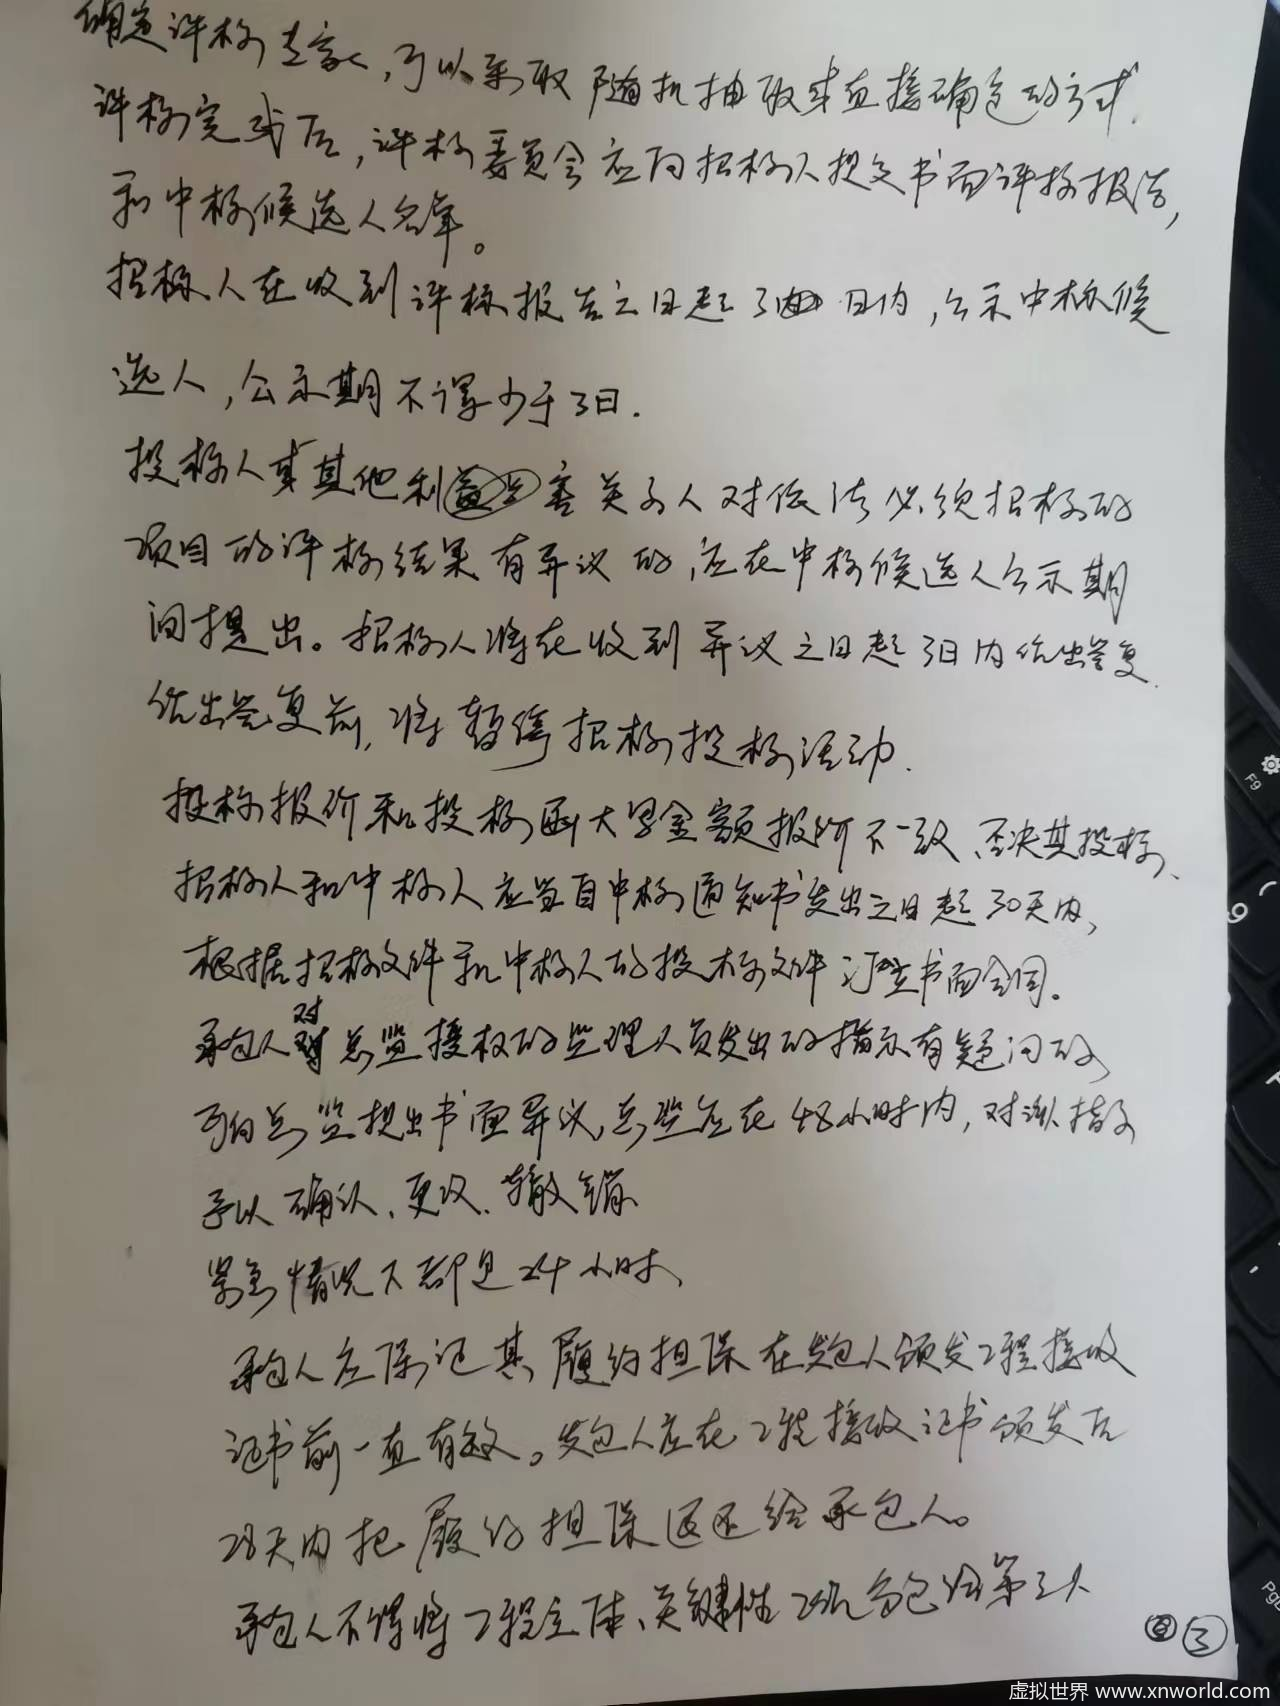 确定评标专家，可以采取随机抽取或直接确定的方式.
评标完成后，评标委员会应向招标人提交书面评标报告，
和中标候选人名单。
招标人在收到评标报告之日起3日内，公示中标候
选人，公示期不得少于3日.
投标人或其他利害关系人对依法必须招标的
项目的评标结果有异议的，应在中标候选人公示期
间提出。招标人将在收到异议之日起3日内作出答复.
作出答复前，将暂停招标投标活动.
投标报价和投标函大写金额报价不一致、否决其投标、
招标人和中标人应当自中标通知书发出之日起30天内，
根据招标文件和中标人的投标文件订立书面合同。
承包人对总监授权的监理人员发出的指示有疑问的
可向总监提出书面异议，总监应在48小时内，对该指示
予以确认、更改、撤销
紧急情况下都是24小时、
承包人应保证其履约担保在发包人颁发工程接收
证书前一直有效。发包人应在工程接收证书颁发后
28天内把履约担保退还给承包人。
承包人不得将工程主体、关键性工作分包给第三人
③
F9
9
PgU
虚拟世界 www.xnworld.com